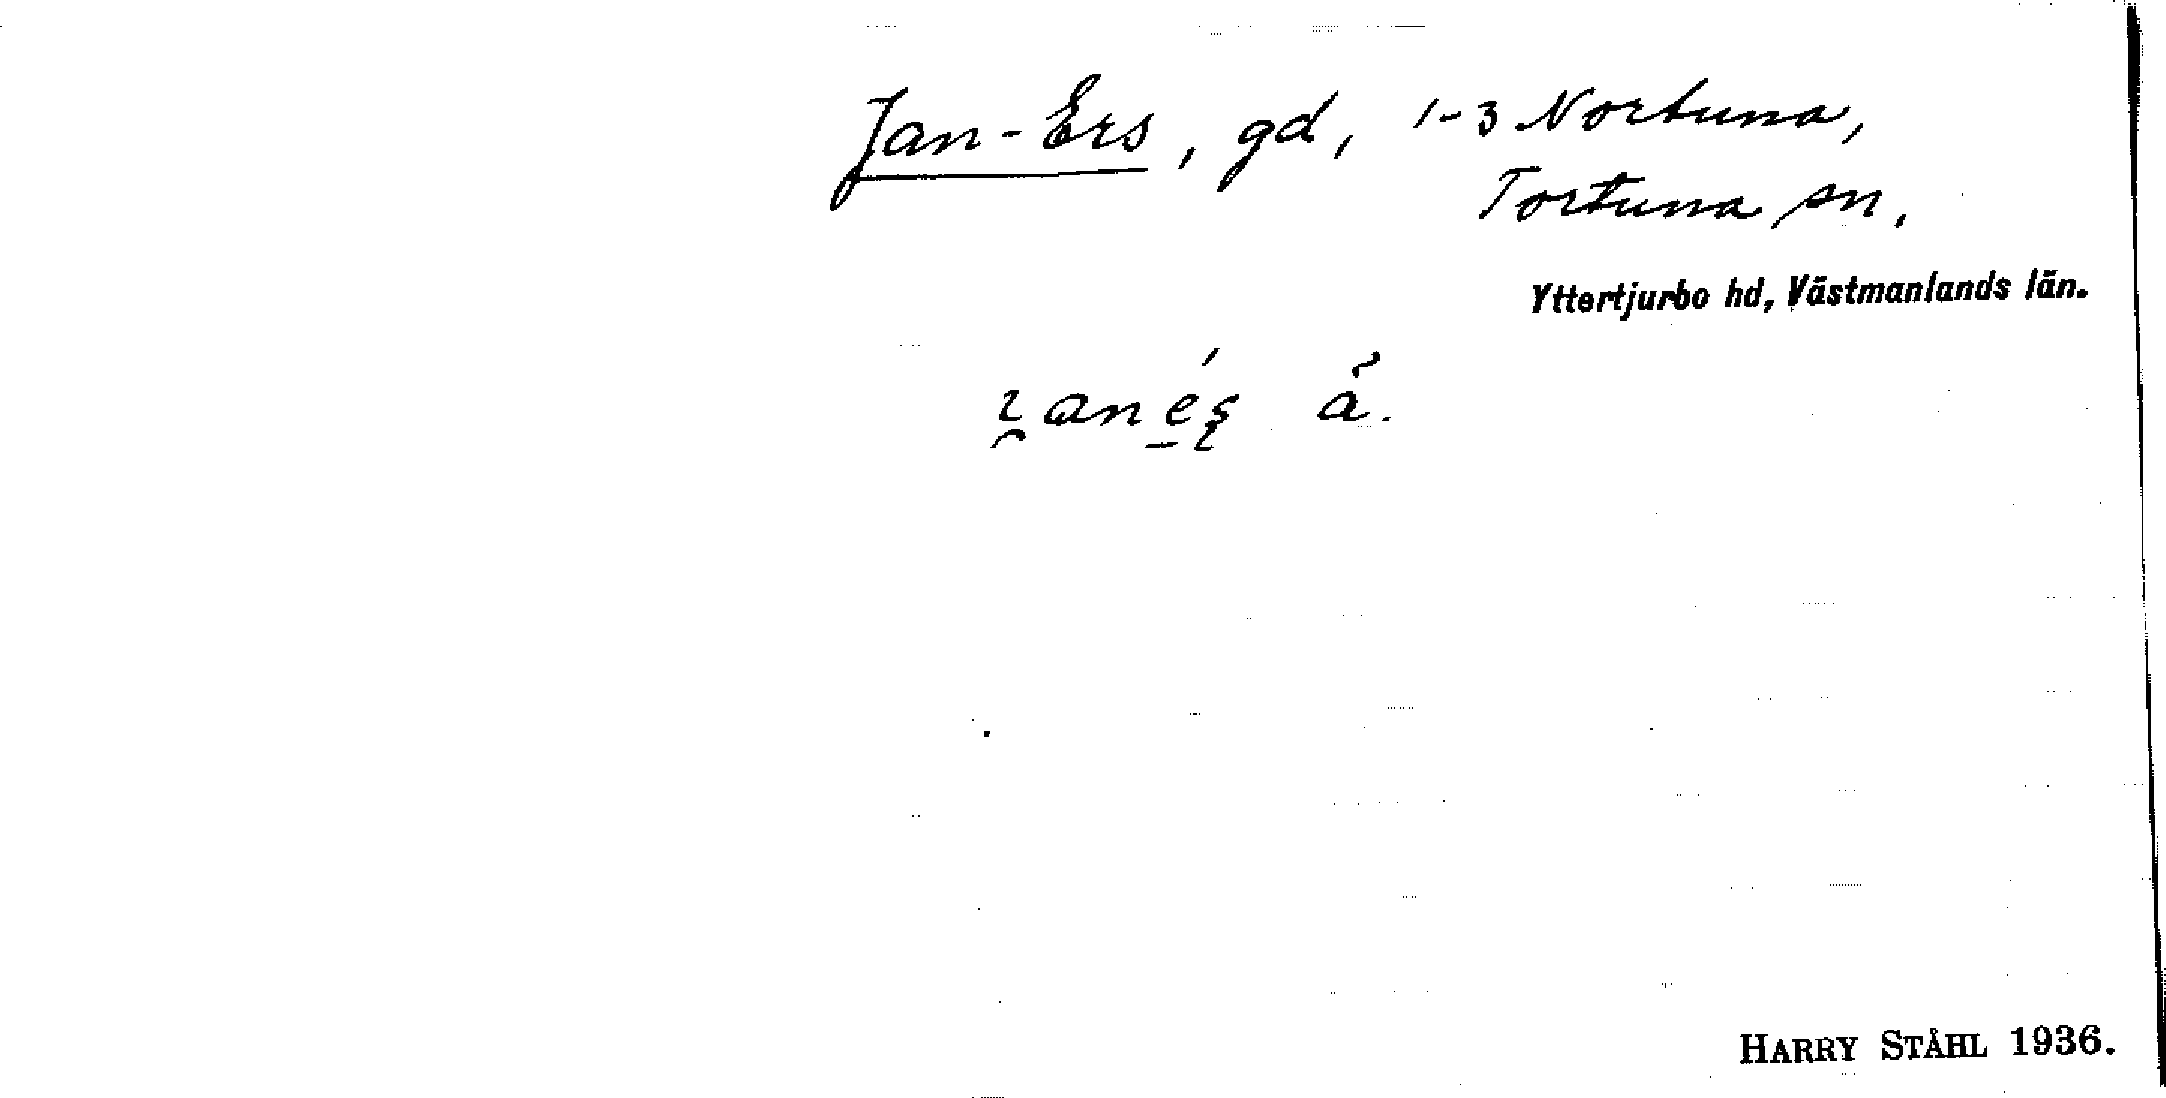 Jan-Ers, gd, 1-3 Nortuna,
Tortuna sn.
Yttertjurbo hd, Västmanlands län.
å.
HARRY STÅHL 1936.